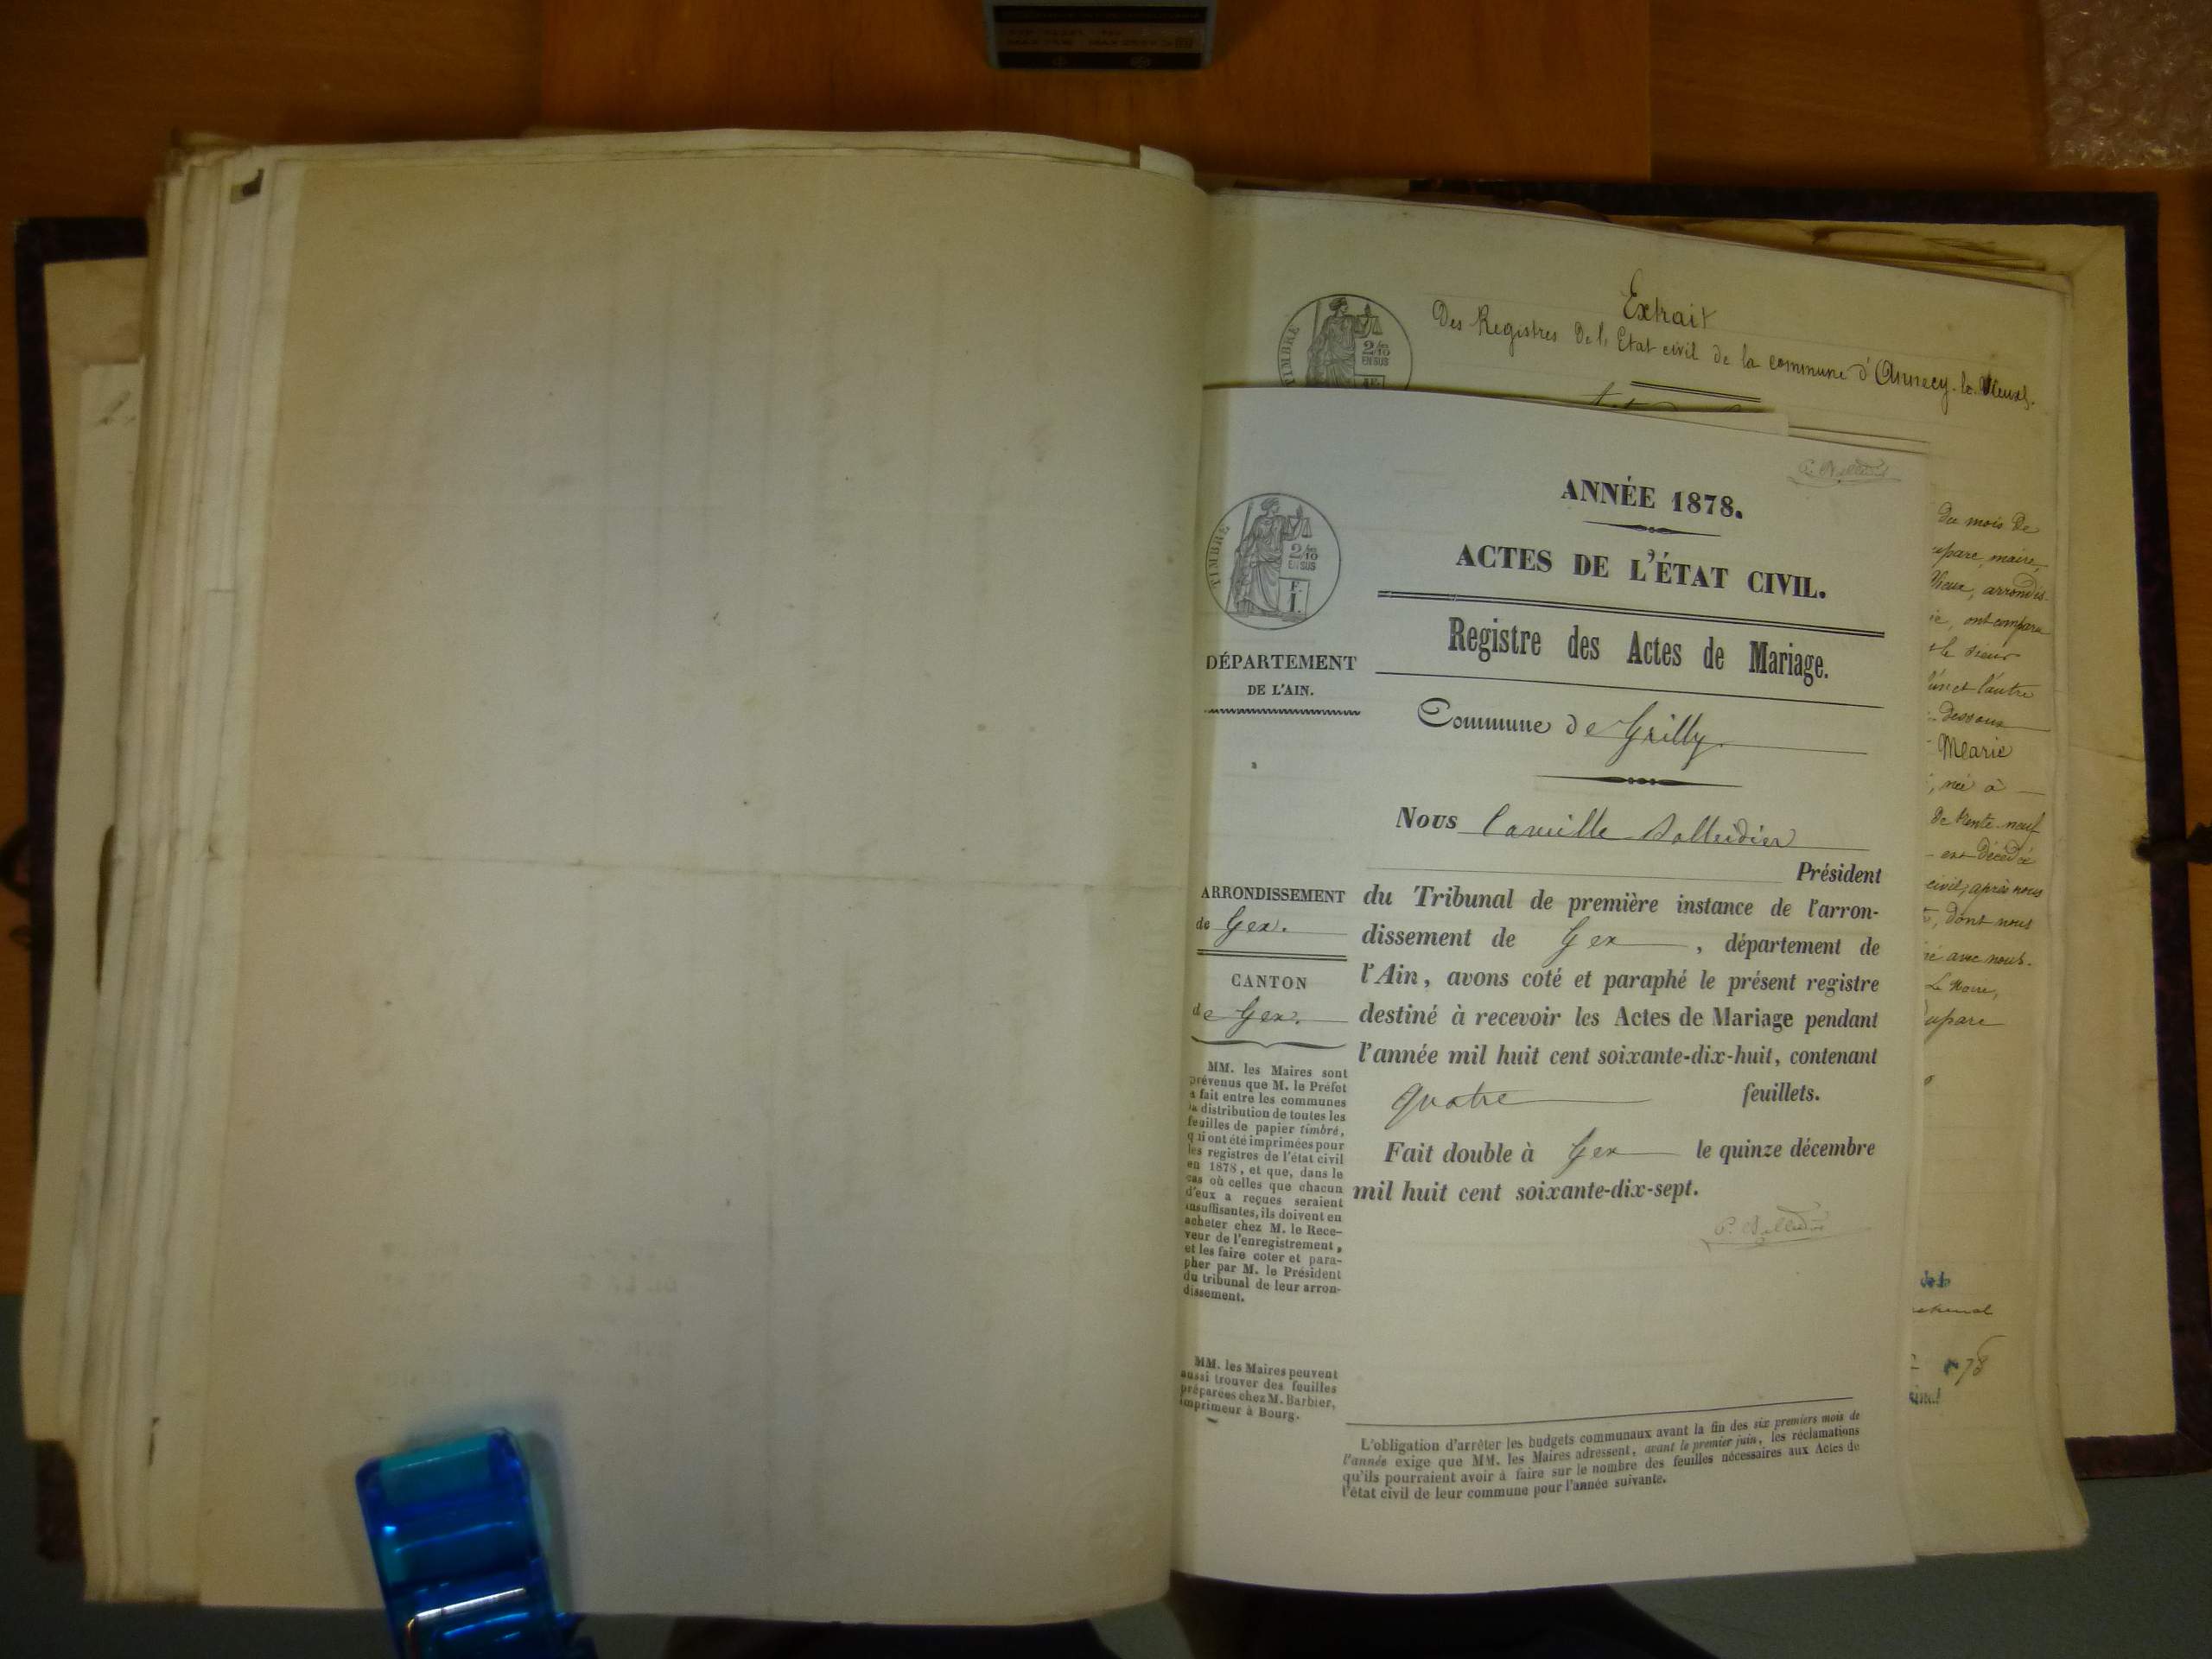 Extrait
Des Registres De l'Etat civil de la commune d'Annecy-le-Vieux.
TIMBRE
2/10
EN SUS
ANNÉE 1878.
ACTES DE L'ÉTAT CIVIL.
Registre des Actes de Mariage.
TIMBRE
2/10
EN SUS
F.
1.
DÉPARTEMENT
DE L'AIN.
Commune de Grilly
Nous Camille
Président
ARRONDISSEMENT
de Gex.
CANTON
de Gex.
du Tribunal de première instance de l'arron-
dissement de Gex, département de
l'Ain, avons coté et paraphé le présent registre
destiné à recevoir les Actes de Mariage pendant
l'année mil huit cent soixante-dix-huit, contenant
quatre feuillets.
Fait double à Gex le quinze décembre
mil huit cent soixante-dix-sept.
MM. les Maires sont
prévenus que M. le Préfet
a fait entre les communes
la distribution de toutes les
feuilles de papier timbré,
qui ont été imprimées pour
les registres de l'état civil
en 1878, et que, dans le
cas où celles que chacun
d'eux a reçues seraient
insuffisantes, ils doivent en
acheter chez M. le Rece-
veur de l'enregistrement,
et les faire coter et para-
pher par M. le Président
du tribunal de leur arron-
dissement.
MM. les Maires peuvent
aussi trouver des feuilles
préparées chez M. Barbier,
imprimeur à Bourg.
L'obligation d'arrêter les budgets communaux avant la fin des six premiers mois de
l'année exige que MM. les Maires adressent, avant le premier juin, les réclamations
qu'ils pourraient avoir à faire sur le nombre des feuilles nécessaires aux Actes de
l'état civil de leur commune pour l'année suivante.
du mois de
maire,
Vieux, arrondis-
ont comparu
le sieur
l'un et l'autre
dessous
Marie
, née à
de trente-neuf
est décédé
civil, après nous
, dont nous
avec nous.
Le Maire,
78